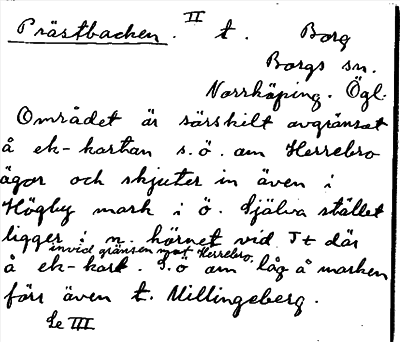 Prästbacken. II t. Borg
Borgs sn.
Norrköping. Ögl.
Området är särskilt avgränsat
å ek-kartan s.ö. om Herrebro
ägor och skjuter in även i
Högby mark i ö. Själva stället
ligger i n. hörnet vid J t där
invid gränsen mot Herrebro,
å ek-kart. S.ö om låg å marken
förr även t. Millingeberg.
Se III